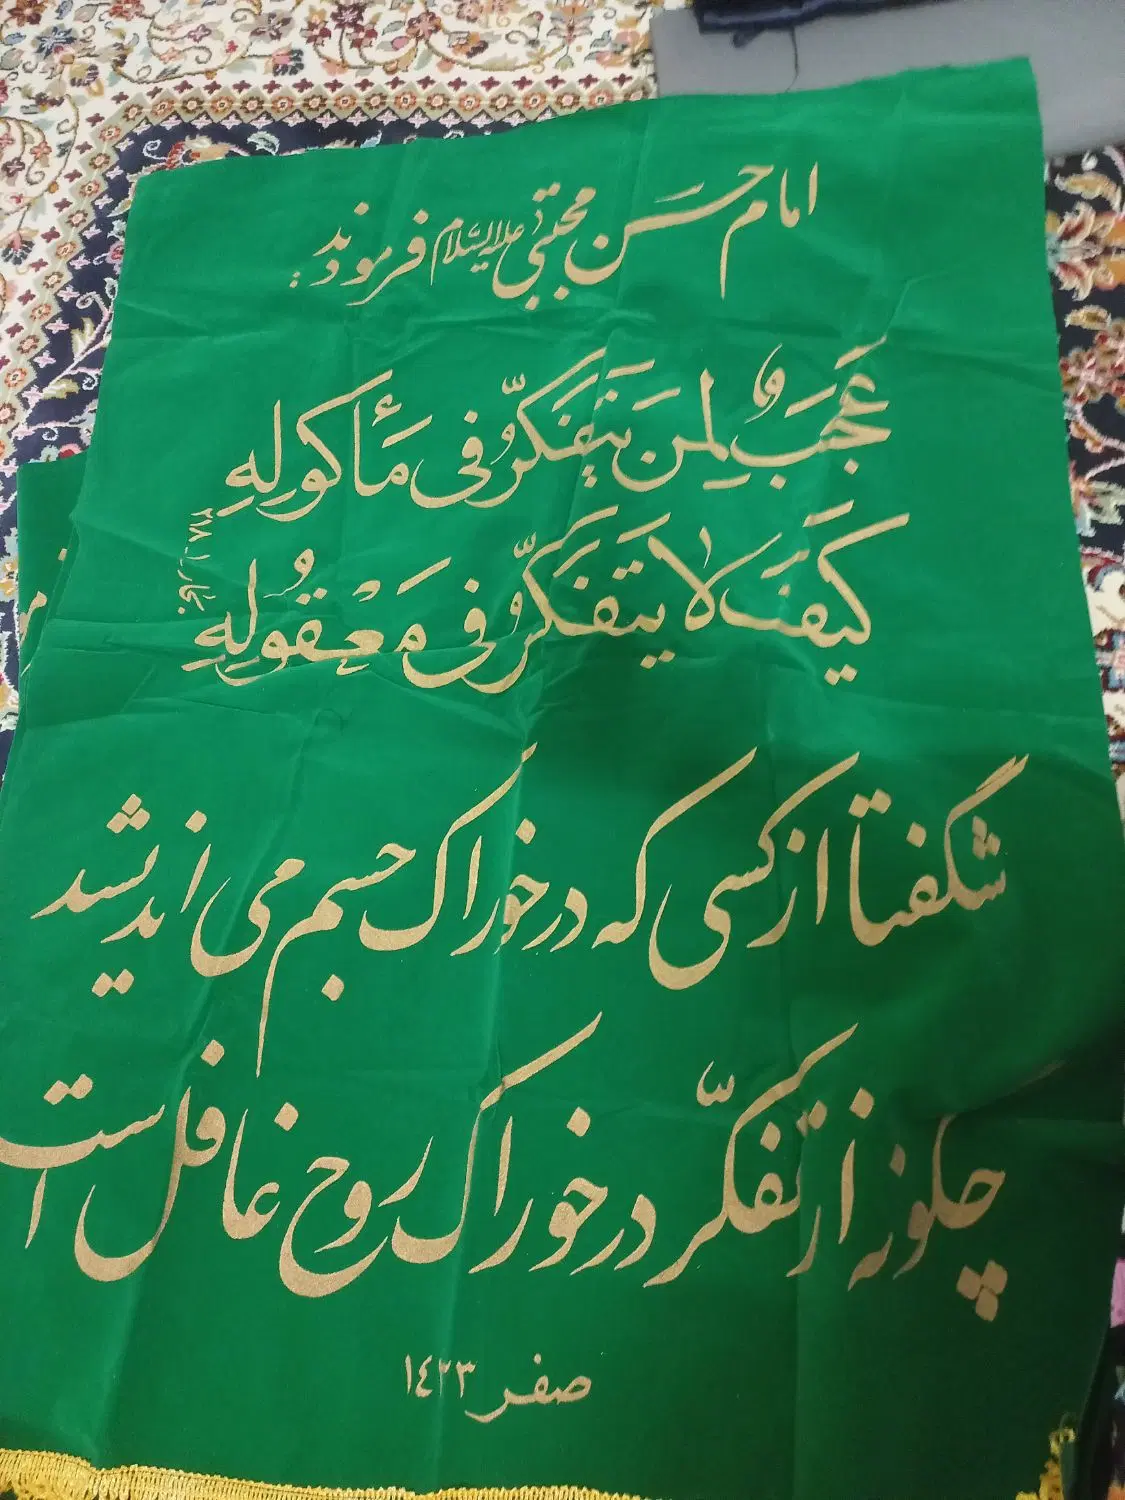 امام حسن مجتبی علیه‌السلام فرمودند:
عَجَبٌ لِمَن یَتَفَکَّرُ فی مَأکولِهِ
کَیفَ لا یَتَفَکَّرُ فی مَعْقُولِهِ
بحار ١_٢١٨
شگفتا از کسی که در خوراک جسم می اندیشد
چگونه از تفکّر در خوراک روح غافل است
صفر ١٤٢٣